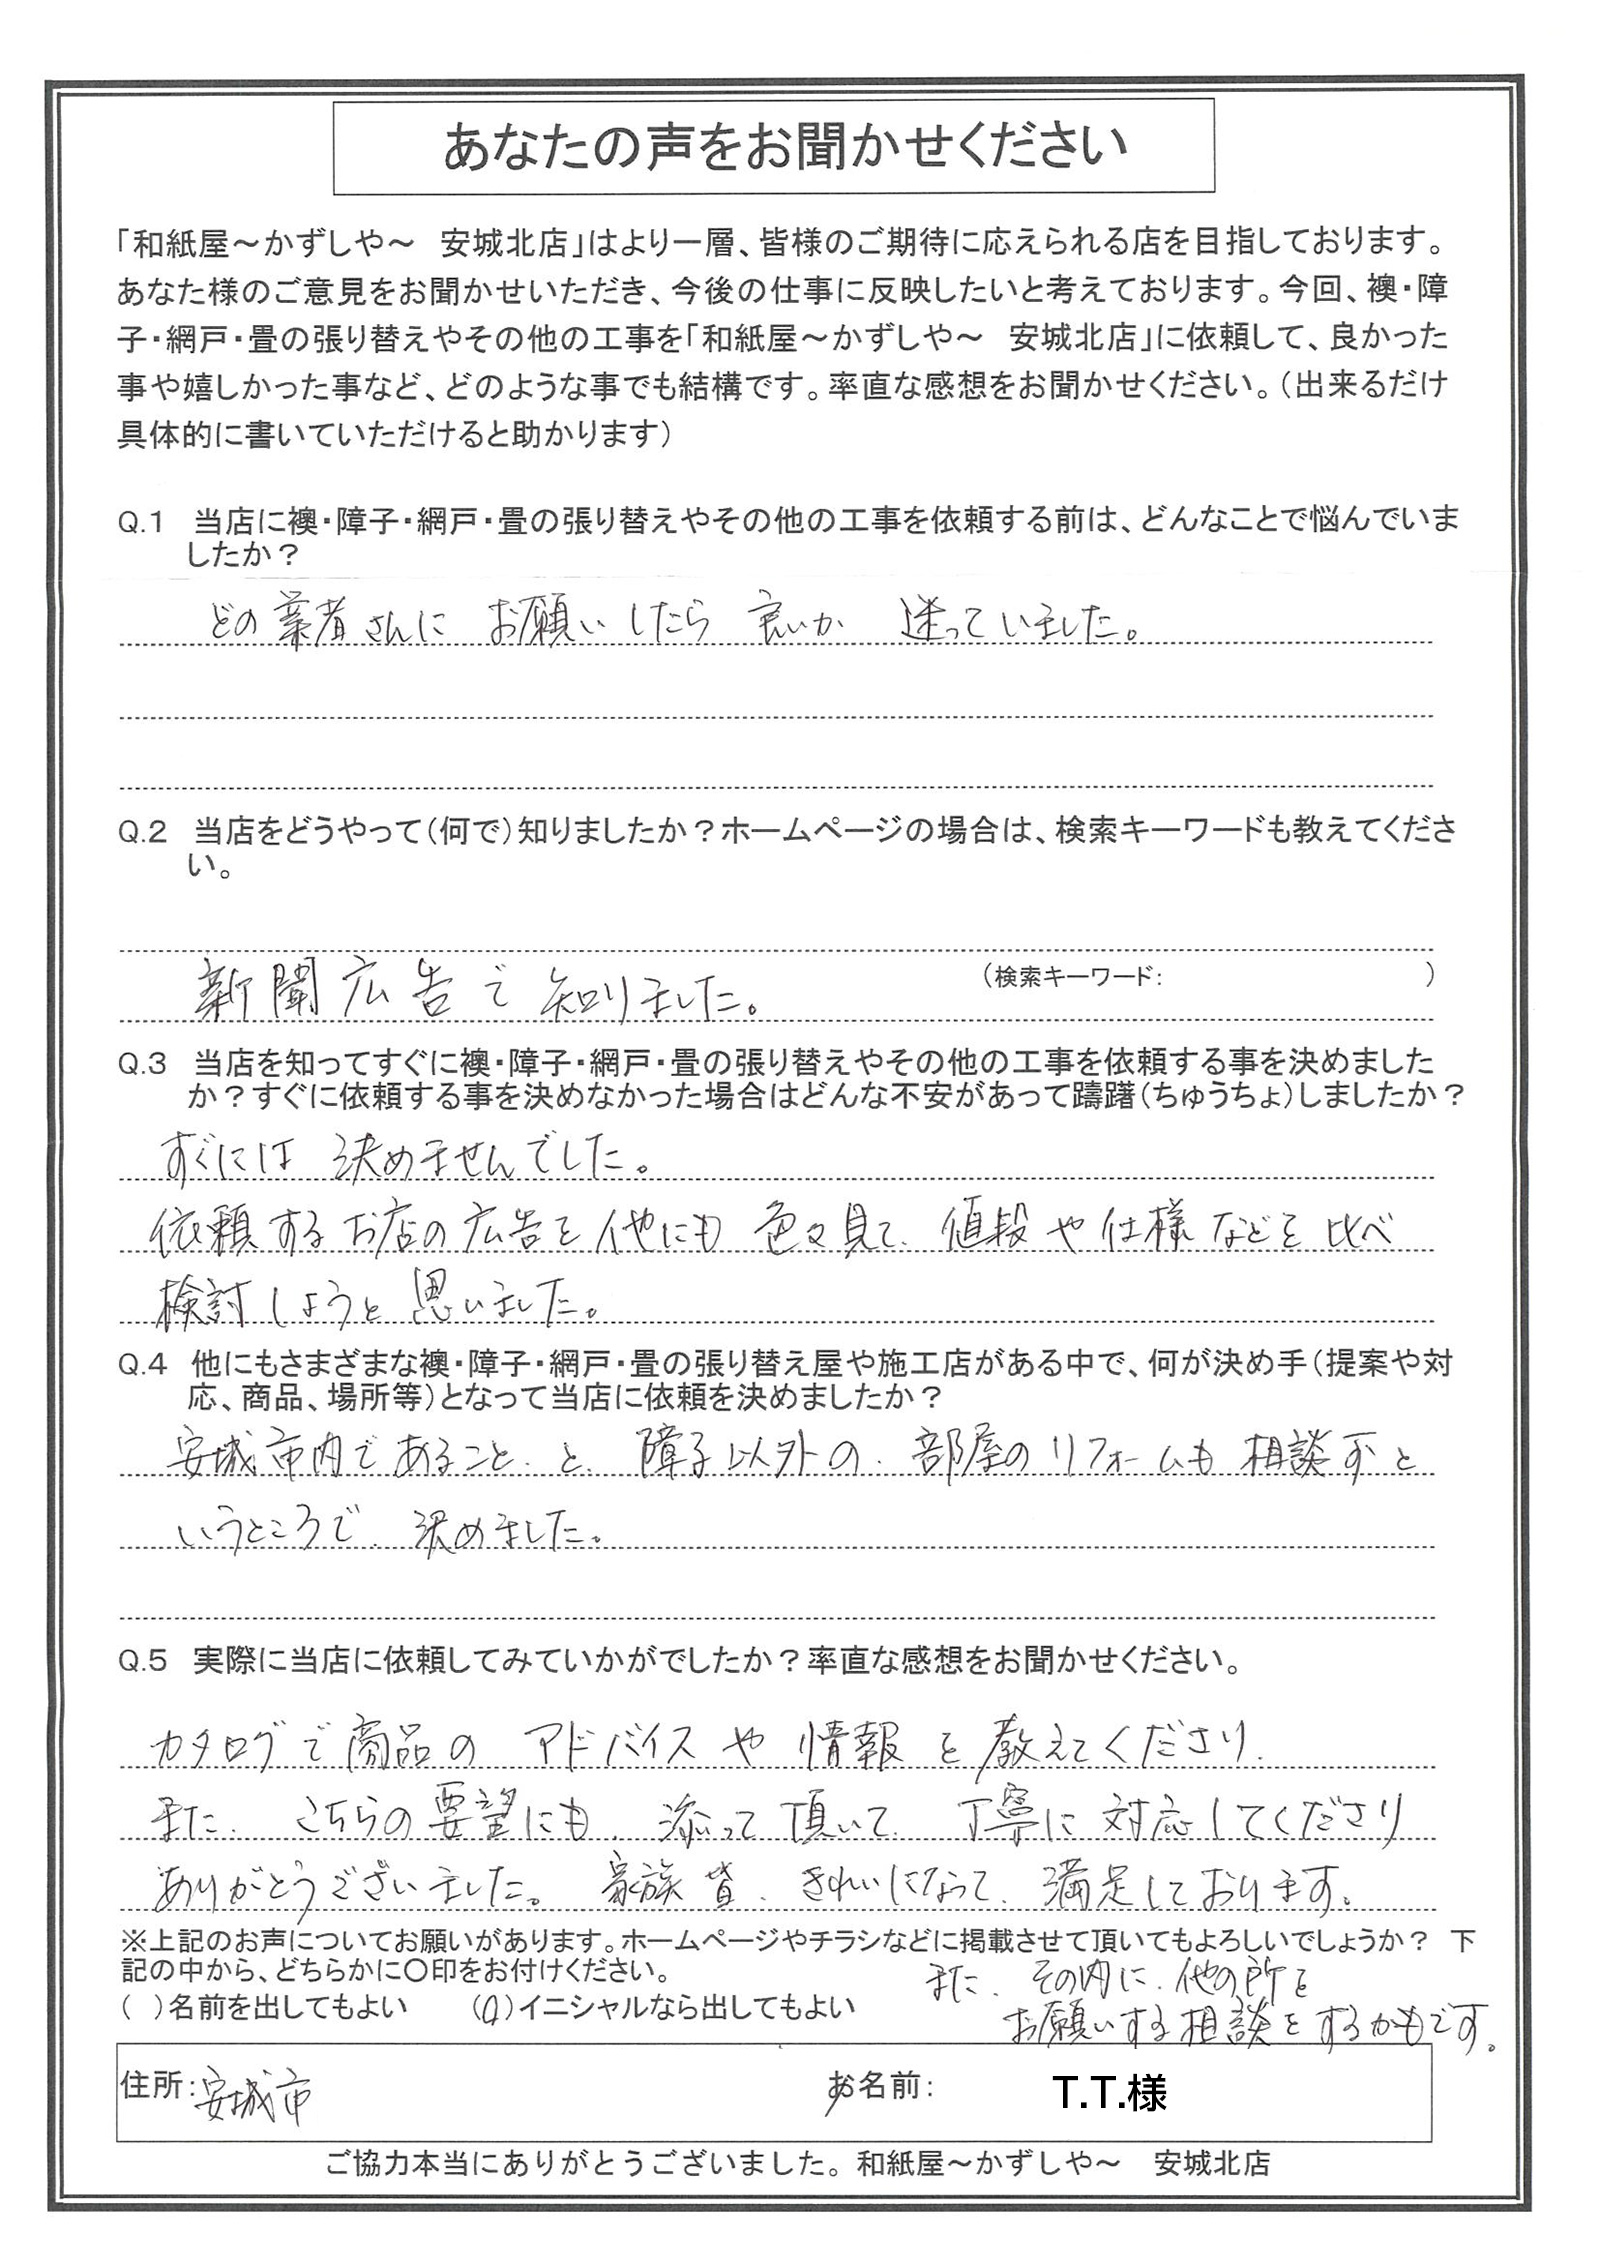 あなたの声をお聞かせください
「和紙屋～かずしや～　安城北店」はより一層、皆様のご期待に応えられる店を目指しております。
あなた様のご意見をお聞かせいただき、今後の仕事に反映したいと考えております。今回、襖・障
子・網戸・畳の張り替えやその他の工事を「和紙屋～かずしや～　安城北店」に依頼して、良かった
事や嬉しかった事など、どのような事でも結構です。率直な感想をお聞かせください。（出来るだけ
具体的に書いていただけると助かります）
Q.1　当店に襖・障子・網戸・畳の張り替えやその他の工事を依頼する前は、どんなことで悩んでいま
したか？
どの業者さんに お願いしたら 良いか 迷っていました。
Q.2　当店をどうやって（何で）知りましたか？ホームページの場合は、検索キーワードも教えてくださ
い。
（検索キーワード：　）
新聞広告で 知りました。
Q.3　当店を知ってすぐに襖・障子・網戸・畳の張り替えやその他の工事を依頼する事を決めました
か？すぐに依頼する事を決めなかった場合はどんな不安があって躊躇（ちゅうちょ）しましたか？
すぐには 決めませんでした。
依頼するお店の広告を他にも 色々見て、値段や仕様などを比べ
検討しようと思いました。
Q.4　他にもさまざまな襖・障子・網戸・畳の張り替え屋や施工店がある中で、何が決め手（提案や対
応、商品、場所等）となって当店に依頼を決めましたか？
安城市内であること、と、障子以外の、部屋のリフォームも相談可と
いうところで、決めました。
Q.5　実際に当店に依頼してみていかがでしたか？率直な感想をお聞かせください。
カタログで商品の アドバイスや 情報を教えてくださり、
また、こちらの要望にも、添って頂いて、丁寧に対応してくださり
ありがとうございました。家族皆、きれいになって、満足しております。
※上記のお声についてお願いがあります。ホームページやチラシなどに掲載させて頂いてもよろしいでしょうか？　下
記の中から、どちらかに〇印をお付けください。
（　）名前を出してもよい　　（〇）イニシャルなら出してもよい
また、その内に、他の所を
お願いする相談をするかもです。
住所：安城市　お名前：　T.T.様
ご協力本当にありがとうございました。和紙屋～かずしや～　安城北店